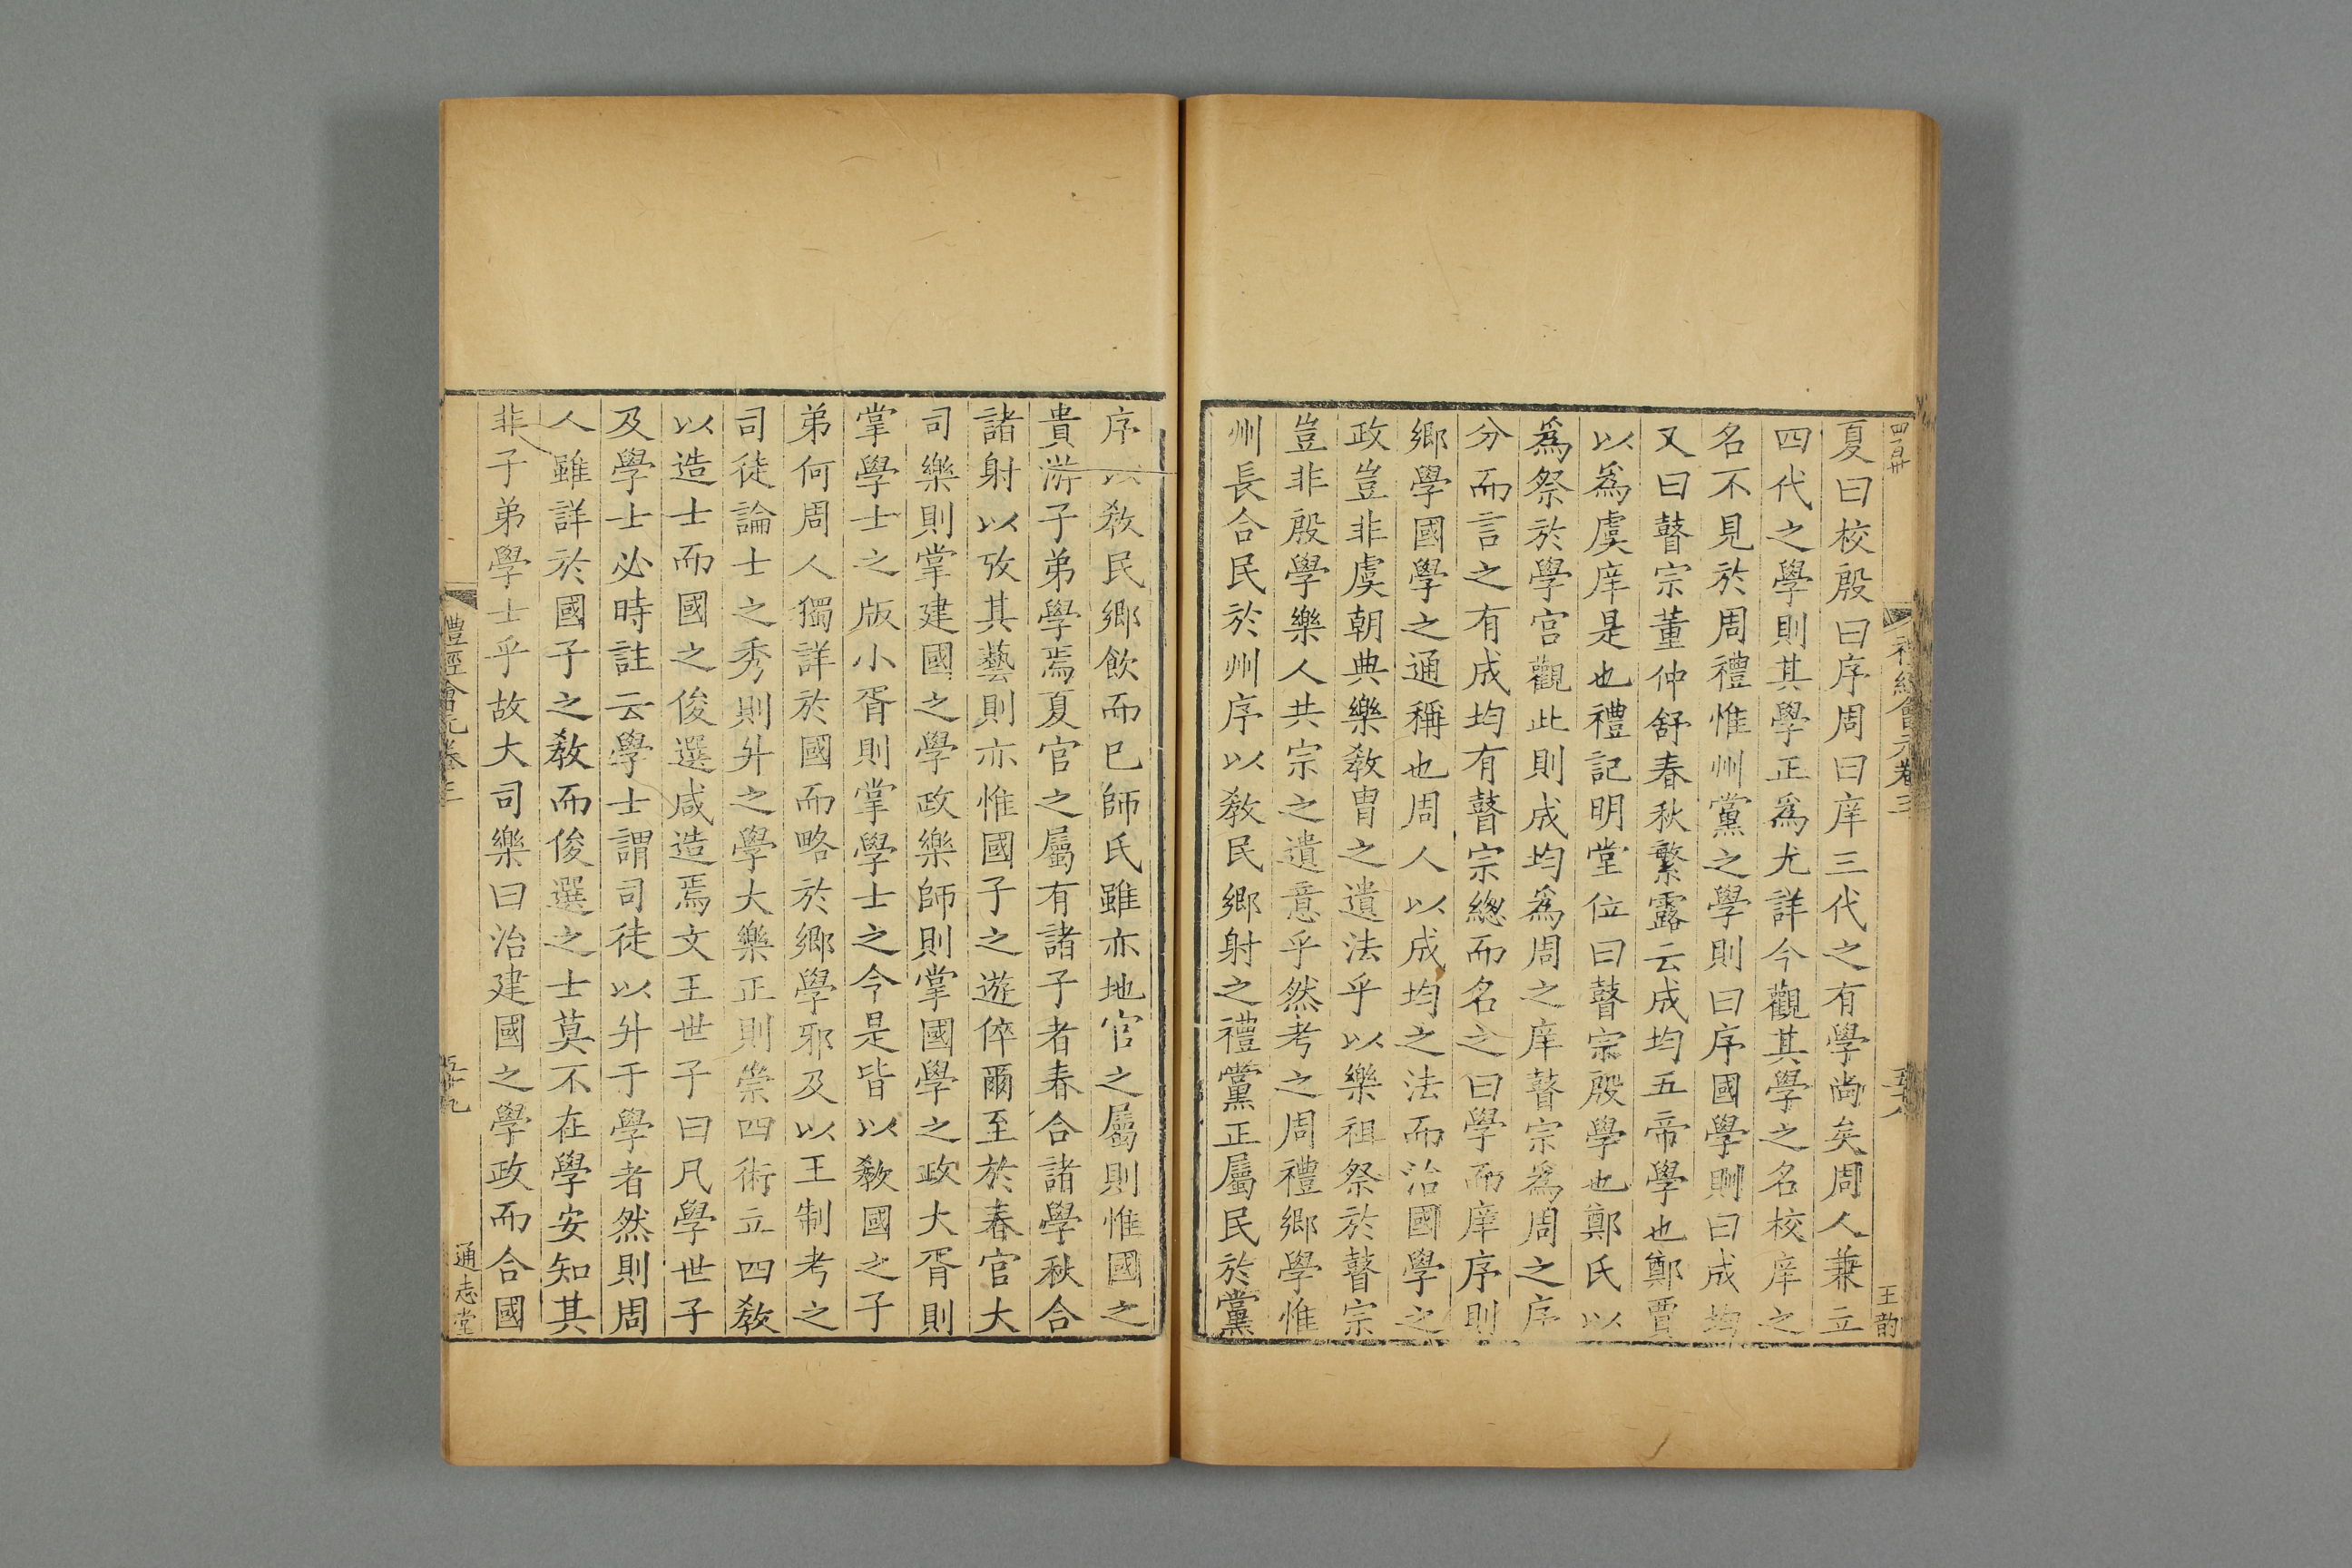 夏曰校殷曰序周曰庠三代之有學尚矣周人兼立
四代之學則其學正爲尤詳今觀其學之名校庠之
名不見於周禮惟州黨之學則曰序國學則曰成均
又曰瞽宗董仲舒春秋繁露云成均五帝學也鄭賈
以爲虞庠是也禮記明堂位曰瞽宗殷學也鄭氏以
爲祭於學宮觀此則成均爲周之庠瞽宗爲周之序
分而言之有成均有瞽宗緫而名之曰學而庠序則
鄉學國學之通稱也周人以成均之法而治國學之
政豈非虞朝典樂敎胄之遺法乎以樂祖祭於瞽宗
豈非殷學樂人共宗之遺意乎然考之周禮鄉學惟
州長合民於州序以敎民鄉射之禮黨正屬民於黨
序以敎民鄉飲而巳師氏雖亦地官之屬則惟國之
貴游子弟學焉夏官之屬有諸子者春合諸學秋合
諸射以攷其藝則亦惟國子之遊倅爾至於春官大
司樂則掌建國之學政樂師則掌國學之政大胥則
掌學士之版小胥則掌學士之令是皆以敎國之子
弟何周人獨詳於國而略於鄉學邪及以王制考之
司徒論士之秀則升之學大樂正則崇四術立四敎
以造士而國之俊選咸造焉文王世子曰凡學世子
及學士必時註云學士謂司徒以升于學者然則周
人雖詳於國子之敎而俊選之士莫不在學安知其
非子弟學士乎故大司樂曰治建國之學政而合國
四百廿
禮經會元卷三
五十八
王韵
禮經會元卷三
五十九
通志堂